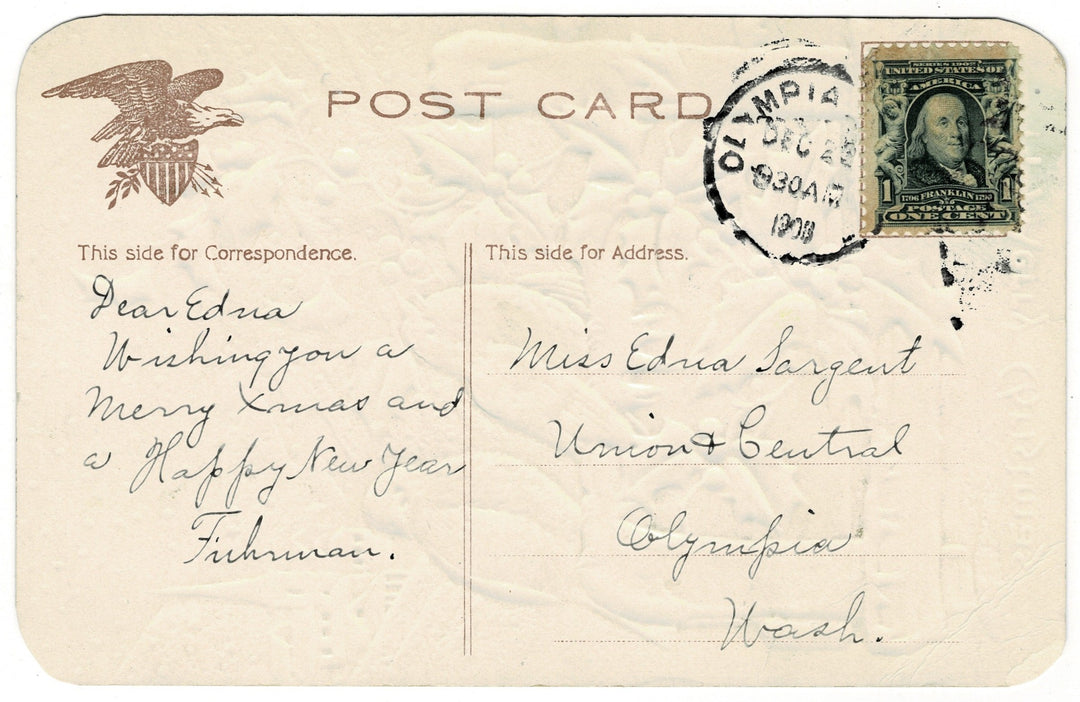 POST CARD
OLYMPIA
DEC 22
930AM
1908
SERIES 1902
UNITED STATES OF
AMERICA
1 1
1706 FRANKLIN 1790
POSTAGE
ONE CENT
This side for Correspondence.
Dear Edna
Wishing you a
Merry Xmas and
a Happy New Year
Fuhrman.
This side for Address.
Miss Edna Sargent
Union & Central
Olympia
Wash.